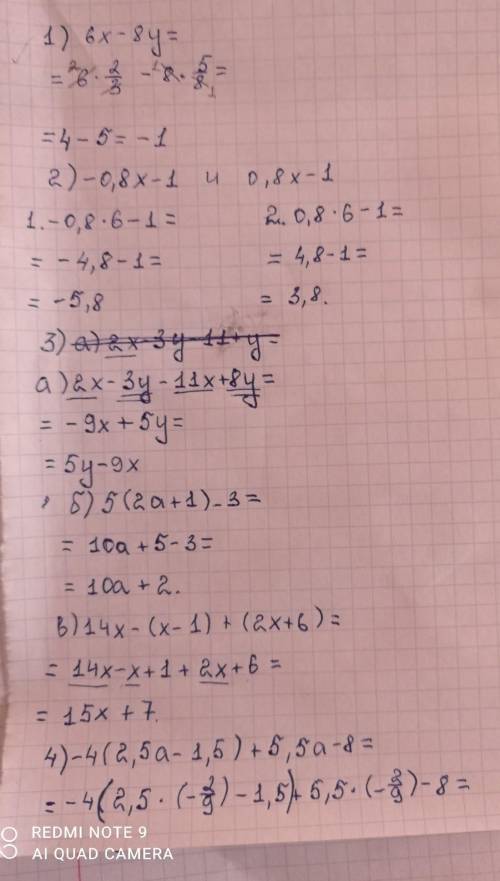 1) 6x - 8y =
= 6 · 2/3 - 8 · 5/8 =
= 4 - 5 = -1
2) -0,8x-1 и 0,8x-1
1. -0,8·6-1= 2. 0,8·6-1=
= -4,8-1= = 4,8-1=
= -5,8 = 3,8.
3) а) 2x-3y-11+y=
а) 2x-3y-11x+8y=
= -9x+5y=
= 5y-9x
б) 5(2a+1)-3=
= 10a+5-3=
= 10a+2.
в) 14x-(x-1)+(2x+6)=
= 14x-x+1+2x+6=
= 15x+7.
4) -4(2,5a-1,5)+5,5a-8=
= -4(2,5·(-2/9)-1,5)+5,5·(-2/9)-8=
REDMI NOTE 9
AI QUAD CAMERA